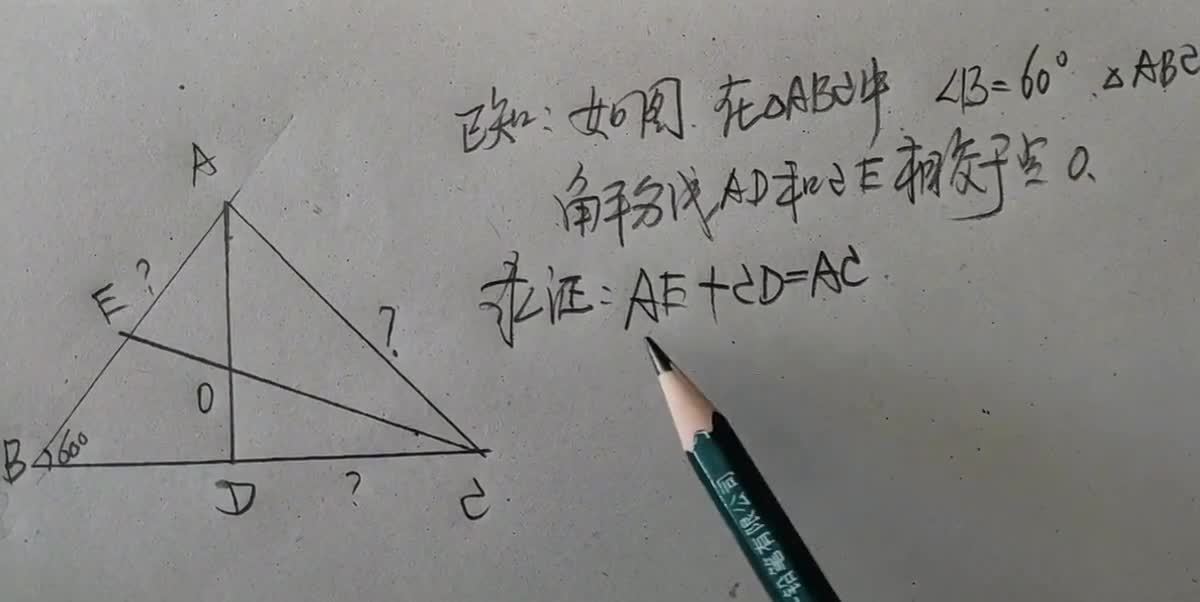 已知：如图．在△ABC中 ∠B=60°．△ABC
角平分线AD和CE相交于点O.
求证：AE+CD=AC.
A
E
?
?
O
B
60°
D
?
C
铅笔有限公司